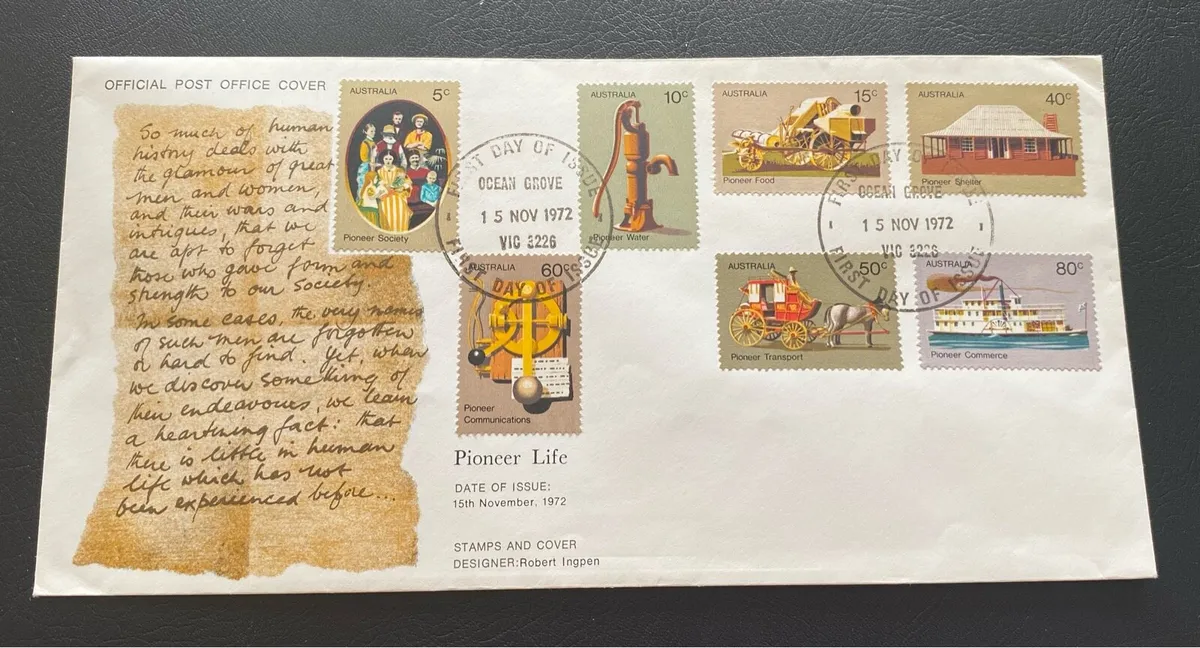 OFFICIAL POST OFFICE COVER
So much of human
history deals with
the glamour of great
men and women,
and their wars and
intrigues, that we
are apt to forget
those who gave form and
strength to our society
In some cases, the very names
of such men are forgotten
or hard to find. Yet, when
we discover something of
their endeavours, we learn
a heartening fact: that
there is little in human
life which has not
been experienced before...
AUSTRALIA 5c
Pioneer Society
AUSTRALIA 10c
Pioneer Water
AUSTRALIA 15c
Pioneer Food
AUSTRALIA 40c
Pioneer Shelter
FIRST DAY OF ISSUE
OCEAN GROVE
15 NOV 1972
VIC 3226
FIRST DAY OF ISSUE
FIRST DAY OF ISSUE
OCEAN GROVE
15 NOV 1972
VIC 3226
FIRST DAY OF ISSUE
AUSTRALIA 60c
Pioneer
Communications
AUSTRALIA 50c
Pioneer Transport
AUSTRALIA 80c
Pioneer Commerce
Pioneer Life
DATE OF ISSUE:
15th November, 1972
STAMPS AND COVER
DESIGNER:Robert Ingpen